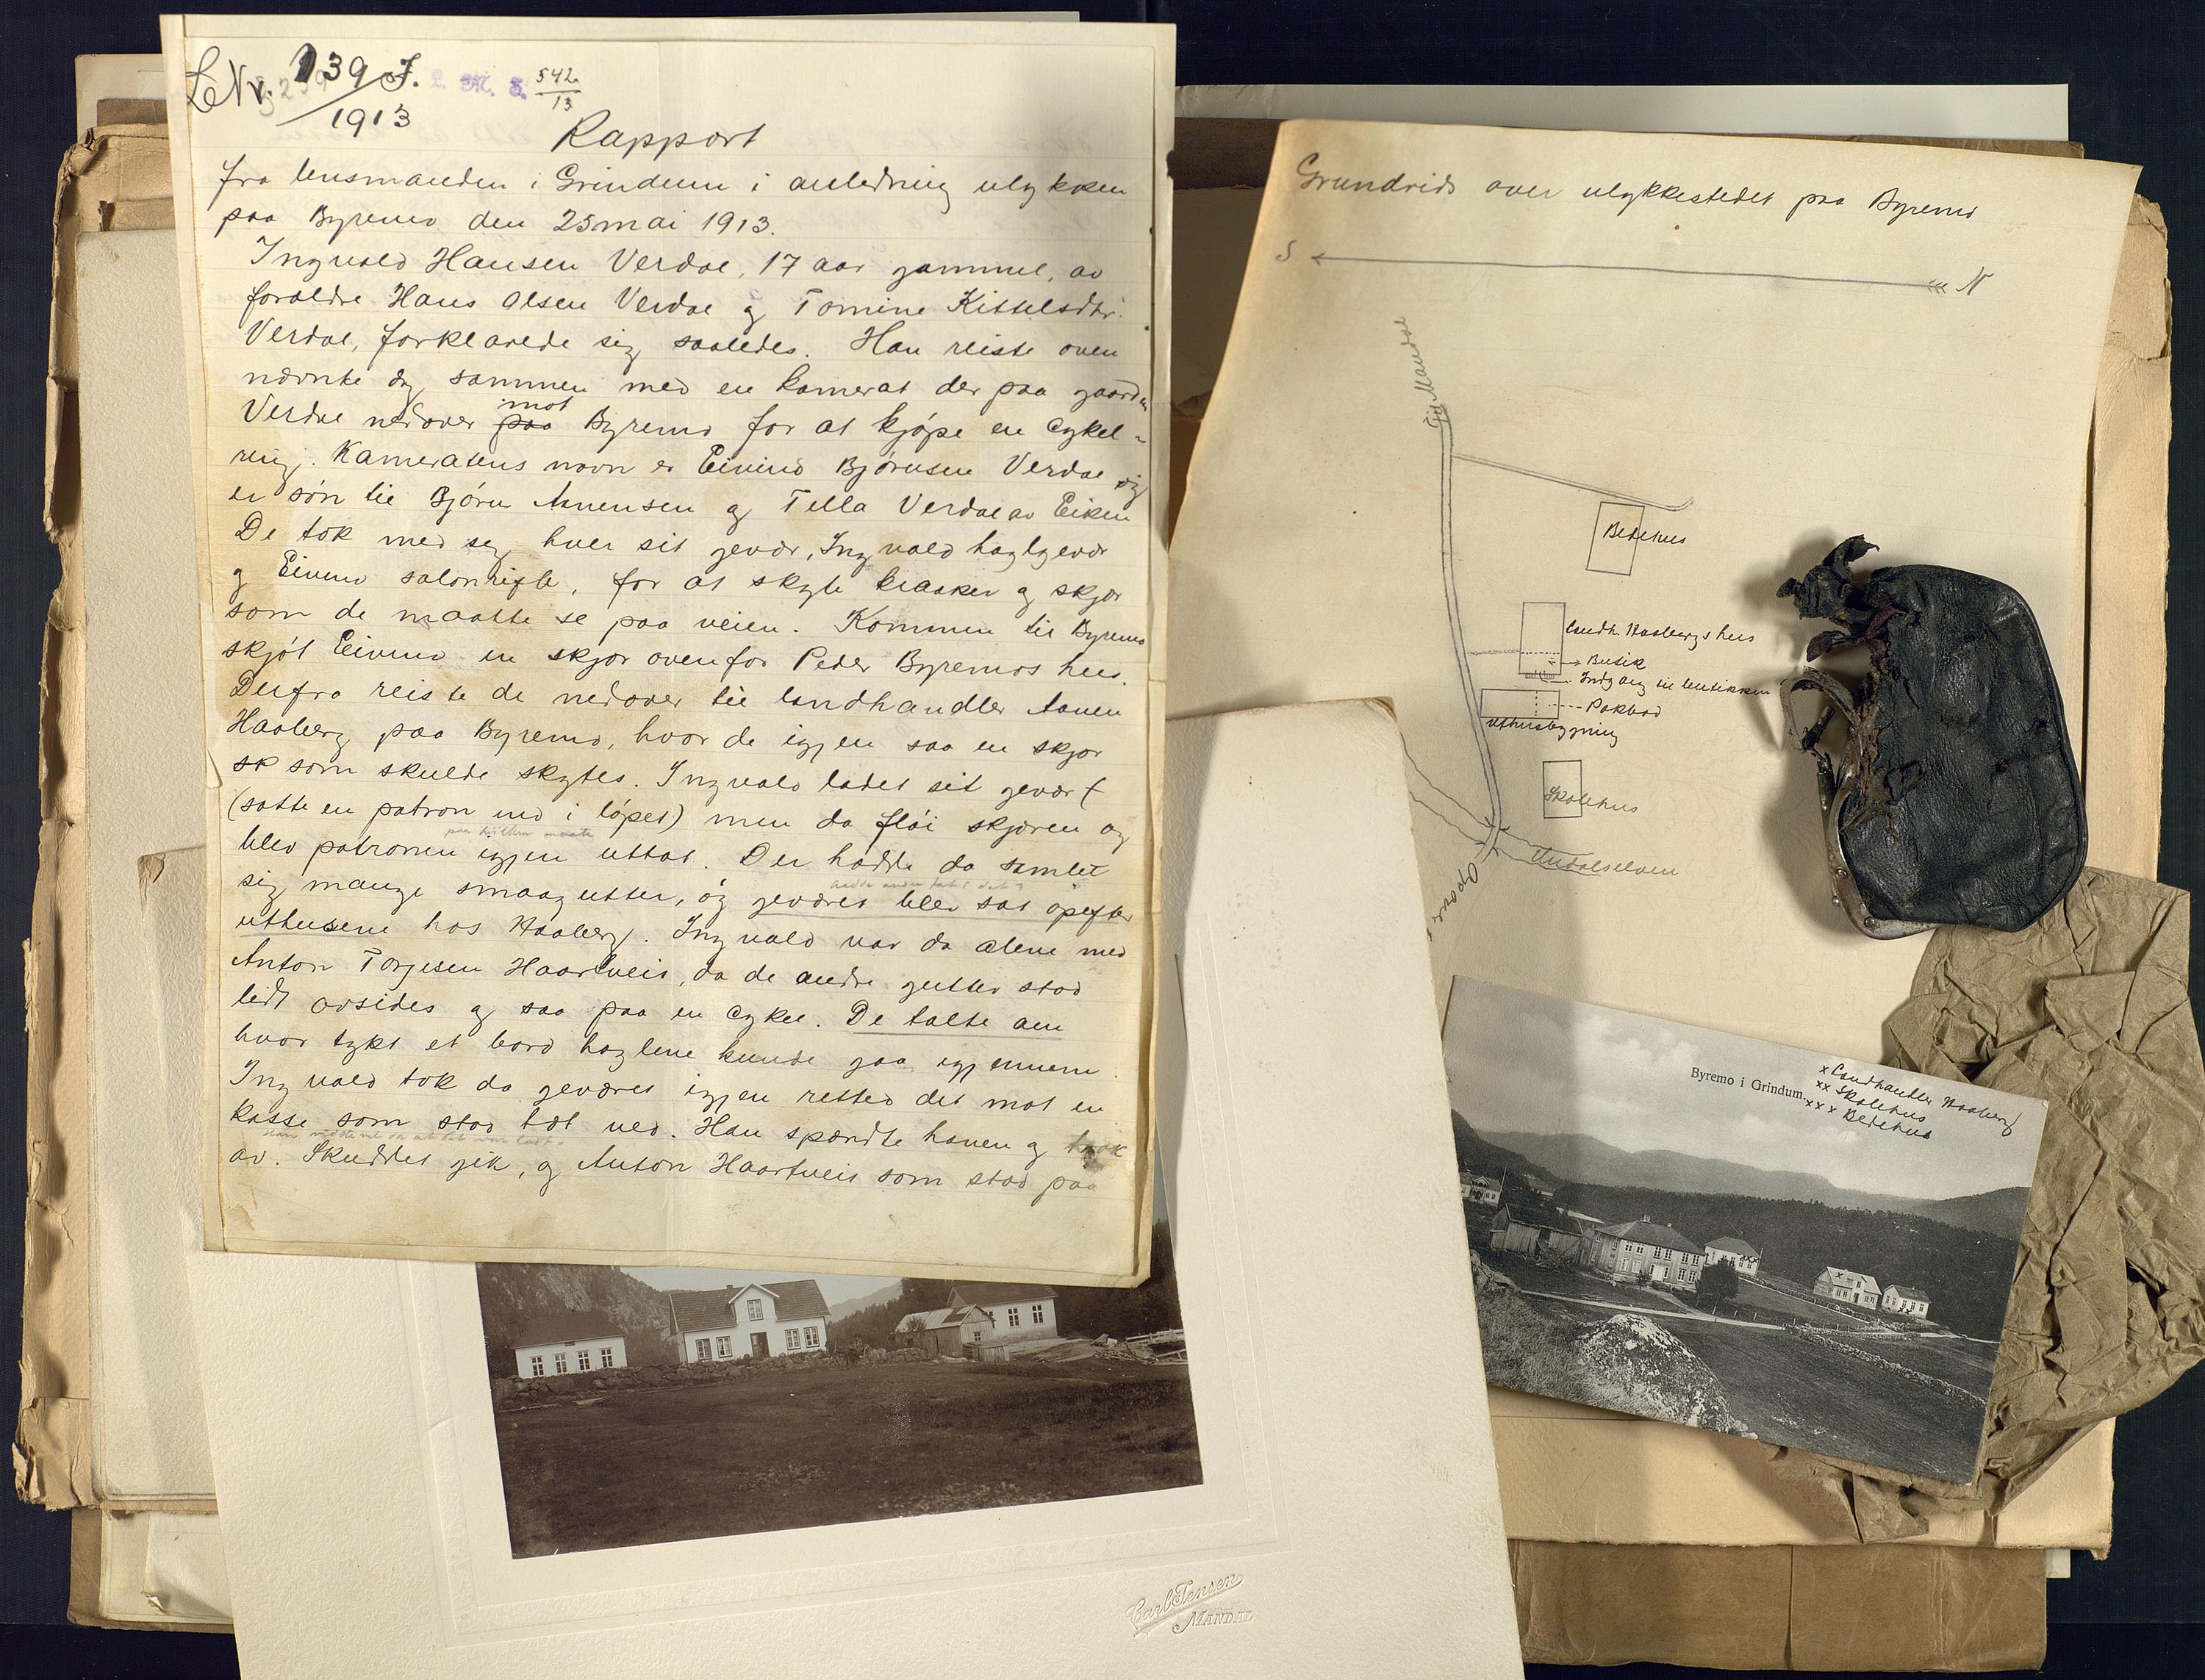 L Nr. 139 J. L. M. S. 542
1913 13
Rapport
fra lensmanden i Grindum i anledning ulykken
paa Byremo den 25 mai 1913.
Ingvald Hansen Verdal, 17 aar gammel, av
forældre Hans Olsen Verdal og Tomine Kittelsdtr.
Verdal, forklarede sig saaledes. Han reiste oven
nævnte dag sammen med en kamerat der paa gaarden
Verdal nedover paa mot Byremo for at kjøpe en cykel-
ring. Kameratens navn er Eivind Bjørnsen Verdal og
er søn til Bjørn Aanensen og Tella Verdal av Eiken
De tok med seg hver sit gevær, Ingvald haglgevær
og Eivind salonrifle, for at skyte kraaker og skjær
som de maatte se paa veien. Kommen til Byremo
skjøt Eivind en skjær ovenfor Peder Byremos hus.
Derfra reiste de nedover til landhandler Aanen
Haaberg paa Byremo, hvor de igjen saa en skjær
sk som skulde skytes. Ingvald ladet sit gevær (
(satte en patron ind i løpet) men da fløi skjæren og
paa hvilken maate
blev patronen igjen uttat. Der hadde da samlet
sig mange smaagutter, og geværet blev sat opefter
hadde andre fat i det?
uthusene hos Haaberg. Ingvald var da alene med
Anton Torjesen Haartveit, da de andre gutter stod
lidt avsides og saa paa en cykel. De talte om
hvor tykt et bord haglene kunde gaa igjennem.
Ingvald tok da geværet igjen rettet det mot en
kasse som stod tæt ved. Han spændte hanen og trak
Han vidste vel da at det var ladt.
av. Skuddet gik, og Anton Haartveit som stod paa
Grundrids over ulykkestedet paa Byremo
S N
Til Mandal
Bedehus
landh. Haabergs hus
Butik
Indgang til butikken
Pakbod
uthusbygning
Skolehus
Undalselven
Byremo i Grindum.
x Landhandler Haaberg
xx Skolehus
xxx Bedehus
Carl Jensen
MANDAL